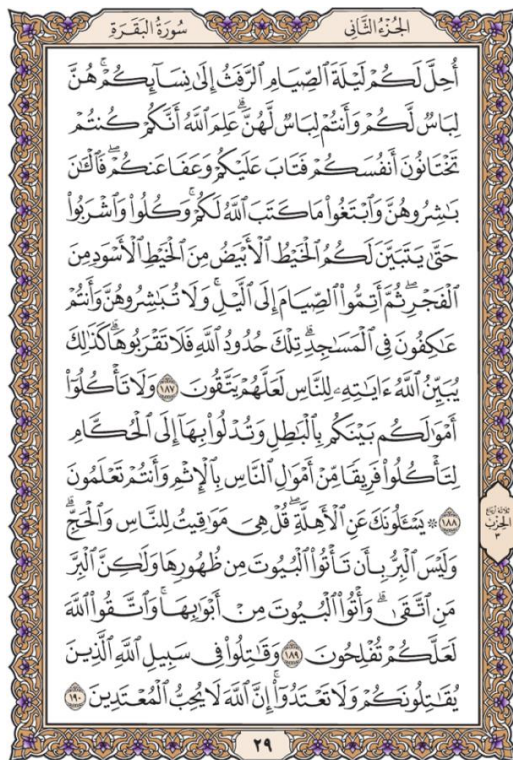 سُورَةُ البَقَرَةِ
الجُزْءُ الثَّانِي
أُحِلَّ لَكُمْ لَيْلَةَ ٱلصِّيَامِ ٱلرَّفَثُ إِلَىٰ نِسَآئِكُمْۚ هُنَّ
لِبَاسٌ لَّكُمْ وَأَنتُمْ لِبَاسٌ لَّهُنَّۗ عَلِمَ ٱللَّهُ أَنَّكُمْ كُنتُمْ
تَخْتَانُونَ أَنفُسَكُمْ فَتَابَ عَلَيْكُمْ وَعَفَا عَنكُمْۖ فَٱلْـَٰٔنَ
بَٰشِرُوهُنَّ وَٱبْتَغُوا۟ مَا كَتَبَ ٱللَّهُ لَكُمْۚ وَكُلُوا۟ وَٱشْرَبُوا۟
حَتَّىٰ يَتَبَيَّنَ لَكُمُ ٱلْخَيْطُ ٱلْأَبْيَضُ مِنَ ٱلْخَيْطِ ٱلْأَسْوَدِ مِنَ
ٱلْفَجْرِۖ ثُمَّ أَتِمُّوا۟ ٱلصِّيَامَ إِلَى ٱلَّيْلِۚ وَلَا تُبَٰشِرُوهُنَّ وَأَنتُمْ
عَٰكِفُونَ فِى ٱلْمَسَٰجِدِۗ تِلْكَ حُدُودُ ٱللَّهِ فَلَا تَقْرَبُوهَاۗ كَذَٰلِكَ
يُبَيِّنُ ٱللَّهُ ءَايَٰتِهِۦ لِلنَّاسِ لَعَلَّهُمْ يَتَّقُونَ ١٨٧ وَلَا تَأْكُلُوٓا۟
أَمْوَٰلَكُم بَيْنَكُم بِٱلْبَٰطِلِ وَتُدْلُوا۟ بِهَآ إِلَى ٱلْحُكَّامِ
لِتَأْكُلُوا۟ فَرِيقًا مِّنْ أَمْوَٰلِ ٱلنَّاسِ بِٱلْإِثْمِ وَأَنتُمْ تَعْلَمُونَ
١٨٨ ۞ يَسْـَٔلُونَكَ عَنِ ٱلْأَهِلَّةِۖ قُلْ هِىَ مَوَٰقِيتُ لِلنَّاسِ وَٱلْحَجِّۗ
وَلَيْسَ ٱلْبِرُّ بِأَن تَأْتُوا۟ ٱلْبُيُوتَ مِن ظُهُورِهَا وَلَٰكِنَّ ٱلْبِرَّ
مَنِ ٱتَّقَىٰۗ وَأْتُوا۟ ٱلْبُيُوتَ مِنْ أَبْوَٰبِهَاۚ وَٱتَّقُوا۟ ٱللَّهَ
لَعَلَّكُمْ تُفْلِحُونَ ١٨٩ وَقَٰتِلُوا۟ فِى سَبِيلِ ٱللَّهِ ٱلَّذِينَ
يُقَٰتِلُونَكُمْ وَلَا تَعْتَدُوٓا۟ۚ إِنَّ ٱللَّهَ لَا يُحِبُّ ٱلْمُعْتَدِينَ ١٩٠
ثلاثة أرباع
الحزب
٣
٢٩